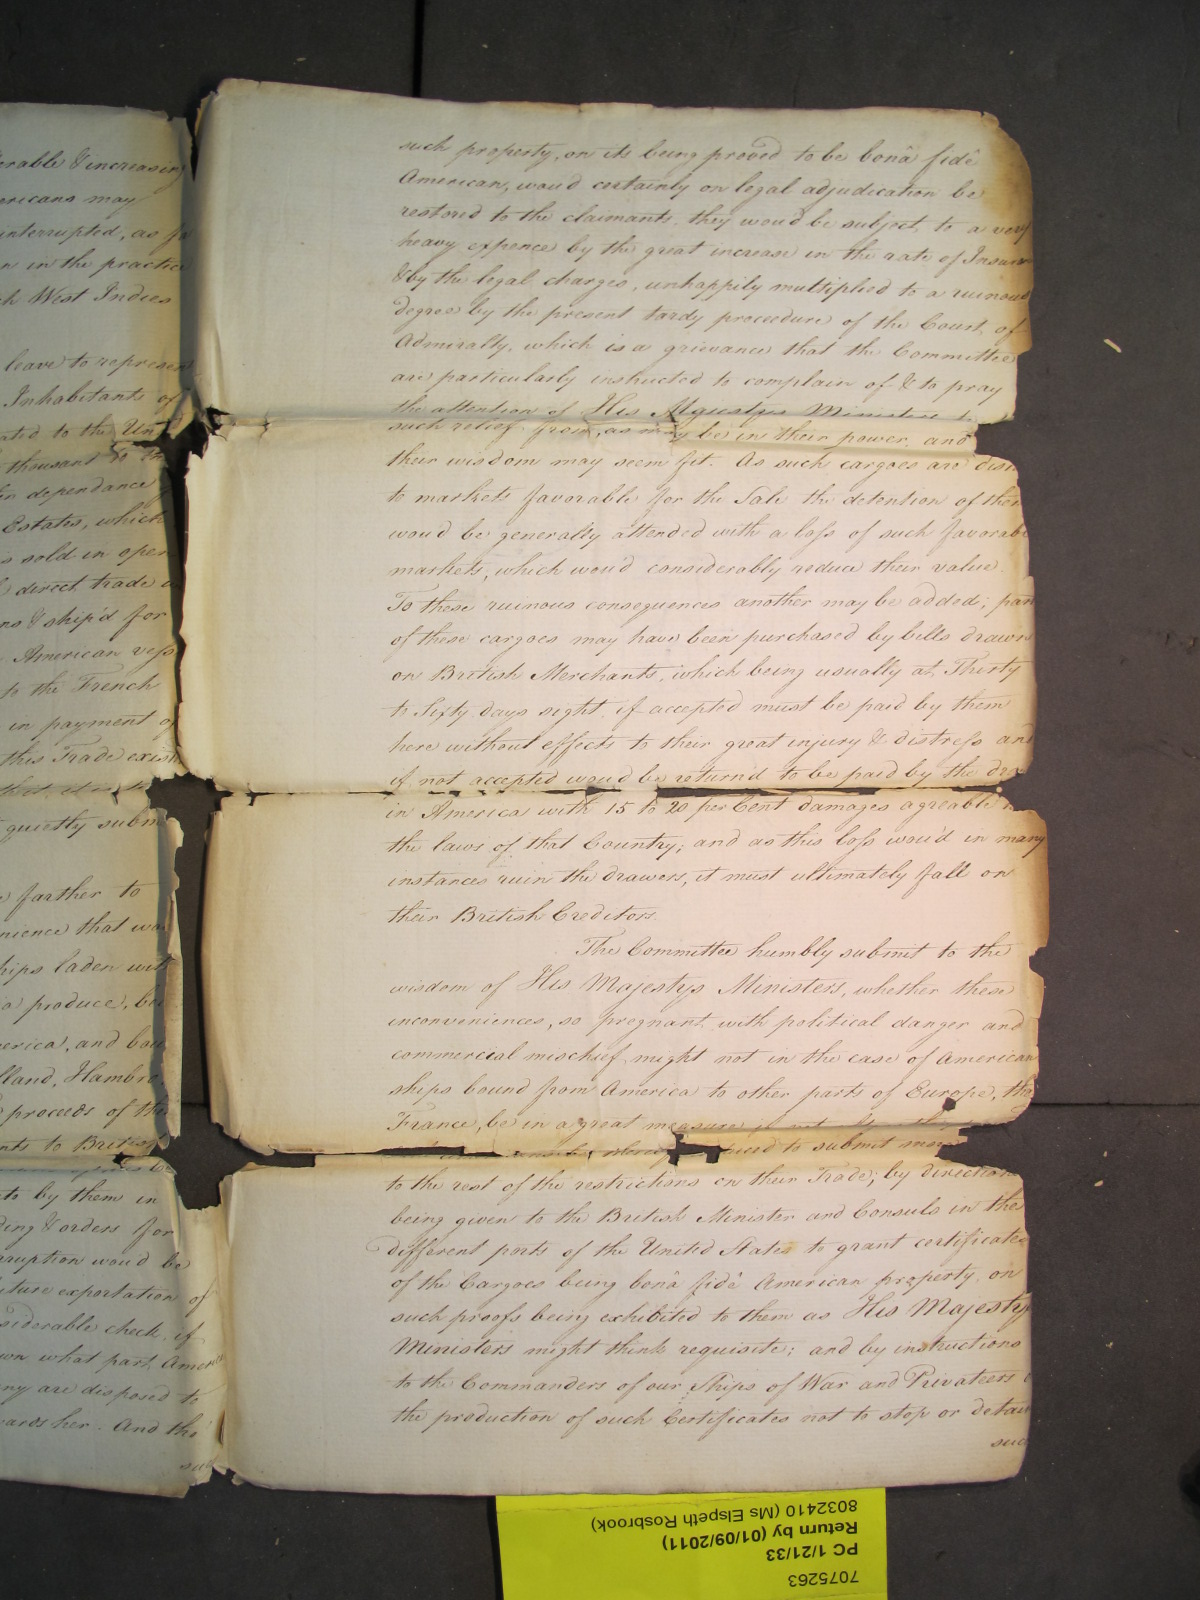 erable & increasing
ericans may
interrupted, as
n in the practice
ch West Indies
leave to represen
Inhabitants of
ated to the Uni
thousand
in dependance
Estates, which
s sold in open
direct trade
ns & ship'd for
American vess
to the French
in payment of
this Trade exist
quietly subm
farther to
nience that wa
hips laden wit
produce, be
erica, and bou
lland, Hambro
proceeds of the
nts to British
nts by them in
ding & orders for
rruption would be
uture exportation of
siderable check if
wn what part Ameri
ny are disposed to
wards her. And thi
such property, on its being proved to be bonâ fidê
American, wou'd certainly on legal adjudication be
restored to the claimants, they wou'd be subject to a very
heavy expence by the great increase in the rate of Insuran
& by the legal charges, unhappily multiplied to a ruinous
degree by the present tardy proceedure of the Court of
Admiralty, which is a grievance that the Committee
are particularly instructed to complain of & to pray
the attention of His Majestys Ministers to
such relief from, as may be in their power and
their wisdom may seem fit. As such cargoes are dis
to markets favorable for the Sale the detention of them
wou'd be generally attended with a loss of such favorabl
markets, which wou'd considerably reduce their value.
To these ruinous consequences another may be added; part
of these cargoes may have been purchased by bills drawn
on British Merchants, which being usually at Thirty
to Sixty days sight if accepted must be paid by them
here without effects to their great injury & distress and
if not accepted wou'd be return'd to be paid by the dra
in America with 15 to 20 per Cent damages agreable
the laws of that Country; and as this loss wou'd in many
instances ruin the drawers, it must ultimately fall on
their British Creditors.
The Committee humbly submit to the
wisdom of His Majestys Ministers, whether these
inconveniences, so pregnant with political danger and
commercial mischief, might not in the case of American
ships bound from America to other parts of Europe, tha
France, be in a great measure
to submit more
to the rest of the restrictions on their Trade; by direction
being given to the British Minister and Consuls in the
different ports of the United States to grant certificates
of the Cargoes being bonâ fidê American property, on
such proofs being exhibited to them as His Majestys
Ministers might think requisite; and by instructions
to the Commanders of our Ships of War and Privateers
the production of such Certificates not to stop or detain
suc
7075263
PC 1/21/33
Return by (01/09/2011)
8032410 (Ms Elspeth Rosbrook)